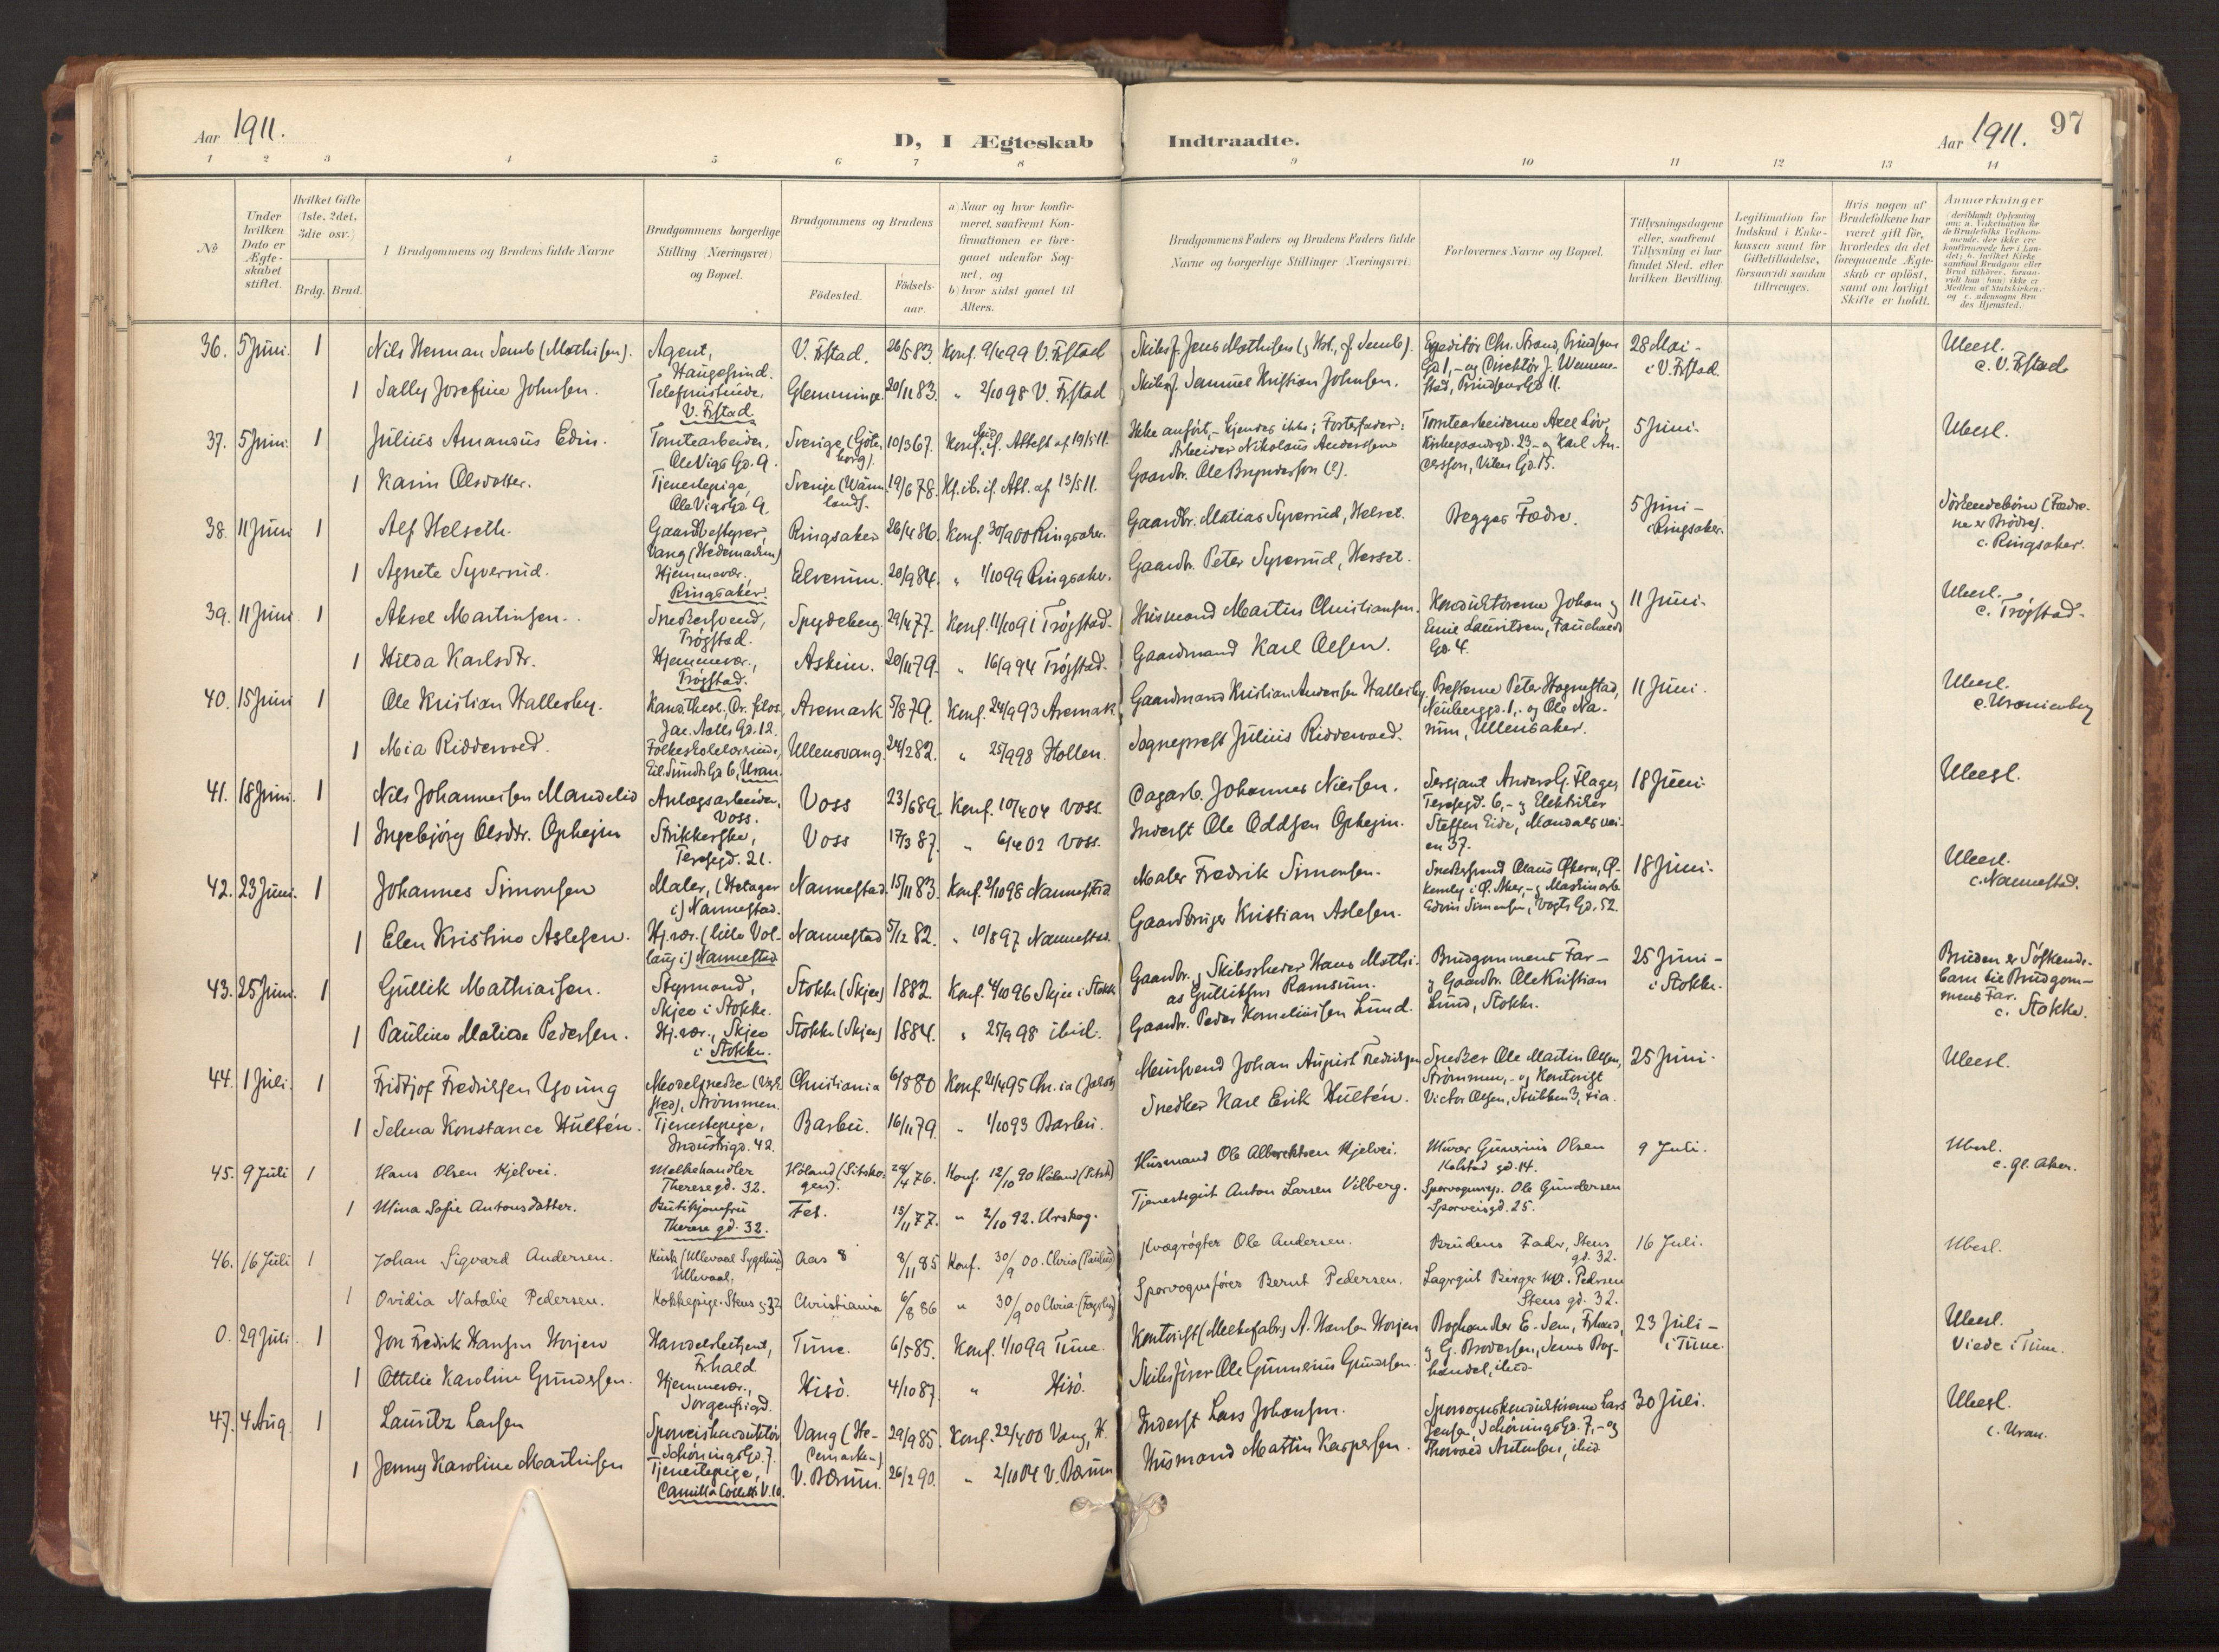 Aar 1911.
D, I Ægteskab Indtraadte.
Aar 1911. 97
1 2 3 4 5 6 7 8 9 10 11 12 13 14
№
Under hvilken Dato er Ægte-skabet stiftet.
Hvilket Gifte (1ste, 2det, 3die osv.)
Brdg. Brud.
1 Brudgommens og Brudens fulde Navne
Brudgommens borgerlige Stilling (Næringsvei) og Bopæl.
Brudgommens og Brudens
Födested.
Födsels-aar.
a) Naar og hvor konfir-meret, saafremt Kon-firmationen er fore-gaaet udenfor Sog-net, og
b) hvor sidst gaaet til Alters.
Brudgommens Faders og Brudens Faders fulde Navne og borgerlige Stillinger (Næringsvei).
Forlovernes Navne og Bopæl.
Tillysningsdagene eller, saafremt Tillysning ei har fundet Sted, efter hvilken Bevilling.
Legitimation for Indskud i Enke-kassen samt for Giftetilladelse, forsaavidt saadan tiltrænges.
Hvis nogen af Brudefolkene har været gift för, hvorledes da det foregaaende Ægte-skab er oplöst, samt om lovligt Skifte er holdt.
Anmærkninger
36. 5 Juni. 1 Nils Herman Semb (Mathisen). Agent, Haugesund. V. Fstad. 26/5 83. Konf. 9/4 99 V. Fstad Skibsf. Jens Mathisen 28 Mai - i V. Fstad. Ubesl. c. V. Fstad.
1 Sally Josefine Johnsen. Telefonistinde, V. Fstad Glemminge. 20/11 83. " 2/10 98 V. Fstad Skibsf. Samuel Kristian Johnsen.
37. 5 Juni. 1 Julius Amandus Edin. Tomtearbeider, Ole Vigs Gd. 9. Sverige (Göteborg). 10/3 67. Konf. if. Attest af 19/5 11. Ikke anført, - kjendes ikke; Fosterfader: Arbeider Nikolaus Anderssen Tomtearbeiderne Axel Löv, Kirkegaardsgd. 23, - og Karl Andersson, Vibes Gd. 15. 5 Juni. Ubesl.
1 Karin Olsdotter. Tjenestepige, Ole Vigs Gd. 9. Sverige (Wärmland). 19/6 78. Kf. ib. if. Att. af 13/5 11.
38. 11 Juni 1 Alf Helseth. Gaardbestyrer, Vang (Hedemarken) Ringsaker 26/4 86. Konf. 30/9 00 Ringsaker. Gaardbr. Matias Syverud, Helset. Begges Fædre. 5 Juni - i Ringsaker. Söskendebörn (Fædrene er Brödre). c. Ringsaker.
1 Agnete Syverud. Hjemmevær., Ringsaker. Elverum. 20/9 84. " 1/10 99 Ringsaker. Gaardbr. Peter Syverud, Hesset.
39. 11 Juni. 1 Aksel Martinsen. Snedkersvend, Trögstad. Spydeberg 29/4 77. Konf. 11/10 91 Trögstad. Husmand Martin Christiansen. Konduktörerne Johan og Emil Lauritsen, Fauchalds Gd. 4. 11 Juni. Ubesl. c. Trögstad.
1 Hilda Karlsdtr. Hjemmevær., Trögstad. Askim. 20/11 79. " 16/9 94 Trögstad. Gaardmand Karl Olsen.
40. 15 Juni 1 Ole Kristian Hallesby. Kand. theol., Dr. filos., Jac. Aalls Gd. 12. Aremark 5/8 79. Konf. 24/9 93 Aremark Gaardmand Kristian Andersen Hallesby. Presterne Peter Hognestad, Neuberggd. 1, - og Ole Narum, Ullensaker. 11 Juni. Ubesl. c. Uranienborg
1 Mia Riddervold. Folkeskolelærerinde, Eil. Sundts Gd 6, Uran. Ullensvang. 24/2 82. " 25/9 98 Hollen. Sogneprest Julius Riddervold.
41. 18 Juni. 1 Nils Johannesen Mandelid Anlægsarbeider, Voss. Voss 23/6 89. Konf. 10/4 04 Voss. Dagarb. Johannes Nielsen. Sersjant Anders G. Flage, Teresegd. 6, - og Elektriker Steffen Eide, Maridalsveien 37. 18 Juni. Ubesl.
1 Ingebjörg Olsdtr. Opheim Strikkerske, Teresegd. 21. Voss 17/3 87. " 6/4 02 Voss. Inderst Ole Oddsen Opheim.
42. 23 Juni. 1 Johannes Simonsen Maler, (Holager i) Nannestad. Nannestad. 15/11 83. Konf. 2/10 98 Nannestad Maler Fredrik Simonsen. Edvin Simensen, Vogts Gd. 52. 18 Juni. Ubesl. c. Nannestad.
1 Elen Kristine Aslesen. Hj. vær. (lille Vollaug i) Nannestad Nannestad 5/12 82. " 10/8 97 Nannestad. Gaardbruger Kristian Aslesen.
43. 25 Juni. 1 Gullik Mathiassen. Styrmand, Skjee i Stokke. Stokke (Skjee) 1882. Konf. 4/10 96 Skjee i Stokke Gaardbr. og Skibsreder Hans Mathias Gulliksen Ramsum. Brudgommens Far - og Gaardbr. Ole Kristian Lund, Stokke. 25 Juni - i Stokke. Bruden er Söskendebarn til Brudgommens Far. c. Stokke.
1 Pauline Matilde Pedersen. Hj. vær., Skjee i Stokke. Stokke (Skjee) 1884. " 25/9 98 ibid. Gaardbr. Peder Korneliussen Lund.
44. 1 Juli. 1 Fridtjof Fredriksen Young Modelsnedker, Strömmen. Christiania 6/8 80 Konf. 21/4 95 Chr.ia (Jakob) Johan August Fredriksen Snedker Ole Martin Olsen, Strömmen, - og Kontorist Victor Olsen, Stubben 3, X.ia. 25 Juni. Ubesl.
1 Selma Konstance Hultén. Tjenestepige, Industrigd. 42. Barbu. 16/11 79. " 1/10 93 Barbu. Snedker Karl Erik Hultén.
45. 9 Juli 1 Hans Olsen Kjelvei. Melkehandler Theresegd. 32. Höland (Setskogen). 24/4 76. Konf. 12/10 90 Höland (Setsk) Husmand Ole Albrektsen Kjelvei. Murer Gunerius Olsen Kolstad gd. 14. 9 Juli. Ubesl. c. Gl. Aker.
1 Mina Sofie Antonsdatter. Butikjomfru Therese gd. 32. Fet. 15/11 77. " 2/10 92. Urskog. Tjenestegut Anton Larsen Vilberg. Sporvognsresp. Ole Gundersen Sporveisgd. 25.
46. 16 Juli 1 Johan Sigvard Andersen. Kusk (Ullevaal Sygehus) Ullevaal. Aas 8/11 85 Konf. 30/9 00. Chria (Paulus) Kvægrögter Ole Andersen. Brudens Fader, Stens gd. 32. 16 Juli. Ubesl.
1 Ovidia Natalie Pedersen. Kokkepige. Stens g. 32 Christiania 6/8 86 " 30/9 00 Chria. (Fagerborg) Sporvognsförer Bernt Pedersen. Lagergut Birger Pedersen Stens gd. 32.
0. 29 Juli. 1 Jon Fredrik Hansen Horjen Handelsbetjent, Frhald Tune. 6/5 85. Konf. 1/10 99 Tune. Kontorist (Melkefabr.) A. Hansen Horjen Boghandler E. Sem, Frhald, og G. Brodersen, Sems Boghandel, ibid. 23 Juli - i Tune. Ubesl. Viede i Tune.
1 Ottilie Karoline Gundersen. Hjemmevær., Sorgenfrigd. Hisö. 4/10 87. " Hisö. Skibsförer Ole Gunnerius Gundersen.
47. 4 Aug. 1 Lauritz Larsen Sporveiskonduktör Schöningsgd. 7. Vang (Hedemarken) 29/9 85. Konf. 22/4 00 Vang, H. Inderst Lars Johansen. Sporvognskonduktörerne Lars Jensen, Schöningsgd. 7, - og Thorvald Antonsen, ibid. 30 Juli. Ubesl. c. Uran.
1 Jenny Karoline Martinsen Tjenestepige, Camilla Colletts V. 10. V. Bærum. 26/2 90. " 2/10 04 V. Bærum Husmand Martin Kaspersen.